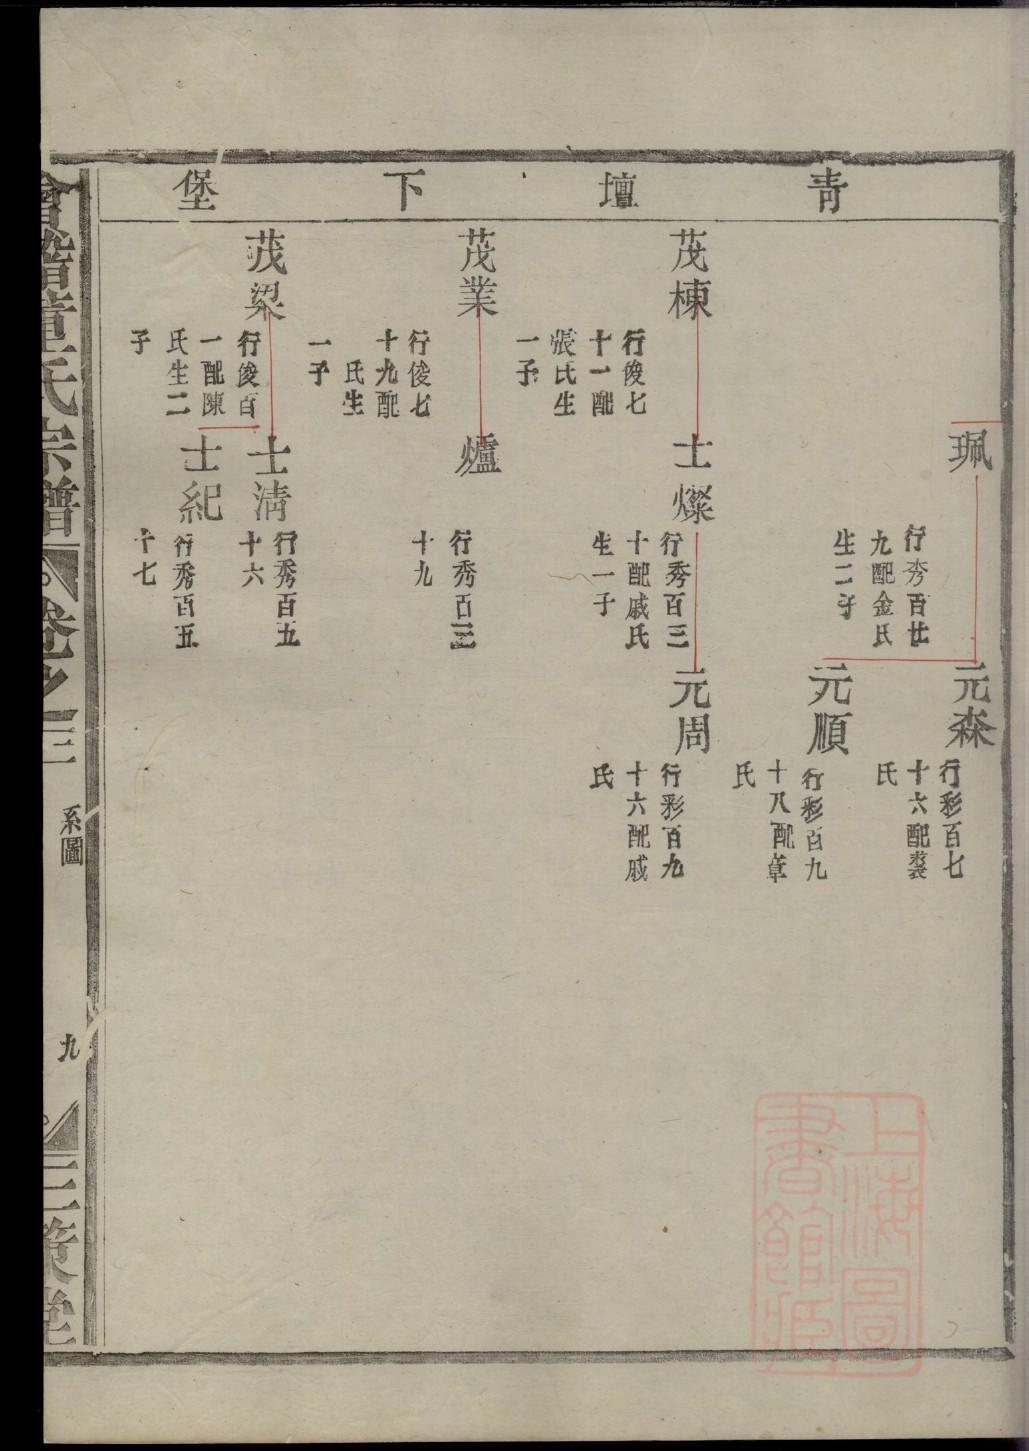 青壇下堡
珮
行秀百廿
九配金氏
生二子
元森
行彩百七
十六配裘
氏
元順
行彩百九
十八配章
氏
茂棟
行俊七
十一配
張氏生
一子
士燦
行秀百三
十配戚氏
生一子
元周
行彩百九
十六配戚
氏
茂業
行俊七
十九配
氏生
一子
爐
行秀百三
十九
茂梁
行俊百
一配陳
氏生二
子
士清
行秀百五
十六
士紀
行秀百五
十七
會稽董氏宗譜
卷之三
系圖
九
三策堂
上海圖
書館藏